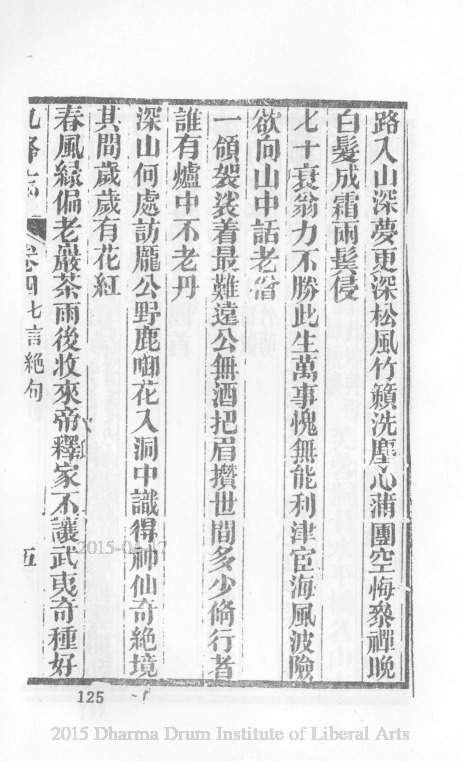 路入山深夢更深松風竹籟洗塵心蒲團空悔參禪晚
白髮成霜兩鬂侵
七十衰翁力不勝此生萬事愧無能利津宦海風波險
欲向山中話老僧
一領袈裟着最難遠公無酒把眉攢世間多少脩行者
誰有爐中不老丹
深山何處訪龎公野鹿啣花入洞中識得神仙奇絶境
其間歲歲有花紅
春風緣偏老巖茶雨後收來帝釋家不讓武夷奇種好
卷四七言絕句
五
2015-04-17
125
2015 Dharma Drum Institute of Liberal Arts